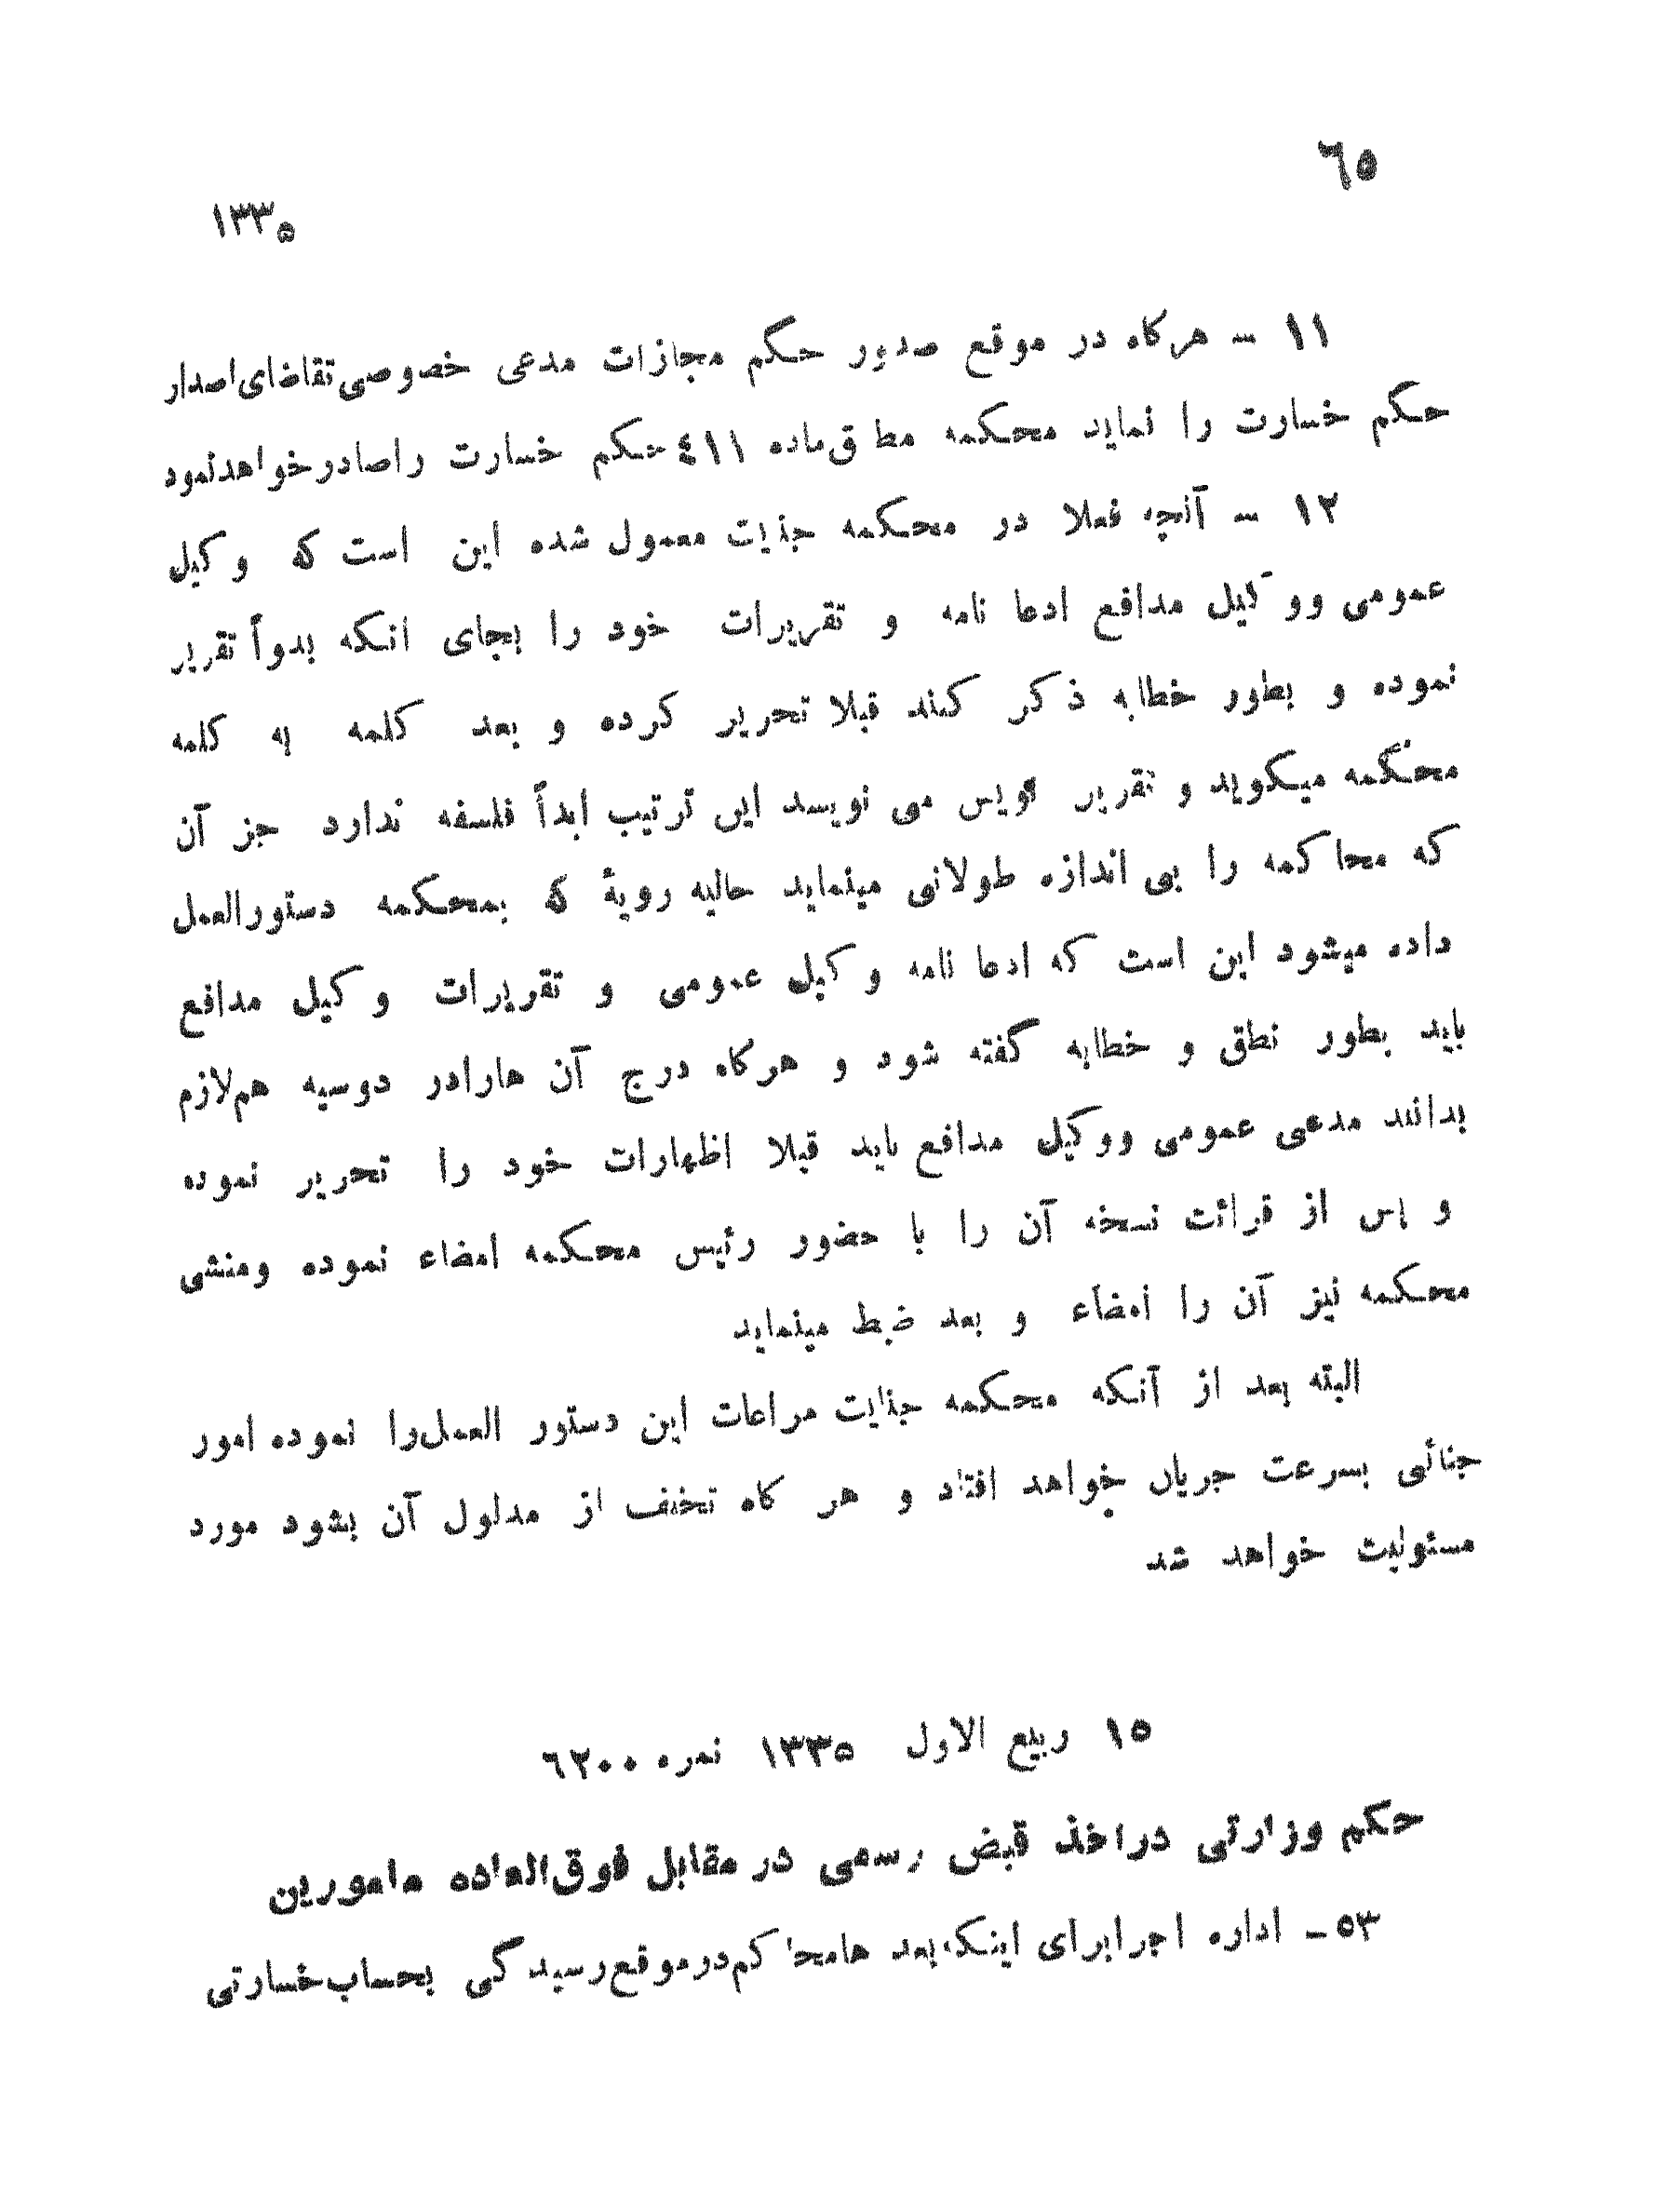 ٦٥
١٣٣٥
١١ – هرکاه در موقع صدور حکم مجازات مدعی خصوصی تقاضای اصدار
حکم خسارت را نماید محکمه مطابق ماده ٤١١ حکم خسارت را صادر خواهد نمود
١٢ – آنچه فعلا در محکمه جنایت معمول شده این است که وکیل
عمومی و وکیل مدافع ادعا نامه و تقریرات خود را بجای انکه بدواً تقریر
نموده و بطور خطابه ذکر کنند قبلا تحریر کرده و بعد کلمه به کلمه
محکمه میکوید و تقریر نویس می نویسد این ترتیب ابداً فلسفه ندارد جز آن
که محاکمه را بی اندازه طولانی مینماید حالیه رویهٔ که بمحکمه دستورالعمل
داده میشود این است که ادعا نامه وکیل عمومی و تقریرات وکیل مدافع
باید بطور نطق و خطابه گفته شود و هرکاه درج آن هارادر دوسیه هم لازم
بدانند مدعی عمومی ووکیل مدافع باید قبلا اظهارات خود را تحریر نموده
و پس از قرائت نسخه آن را با حضور رئیس محکمه امضاء نموده ومنشی
محکمه نیز آن را امضاء و بعد ضبط مینماید
البته بعد از آنکه محکمه جنایت مراعات این دستور العمل را نموده امور
جنائی بسرعت جریان خواهد افتاد و هر کاه تخلف از مدلول آن بشود مورد
مسئولیت خواهد شد
١٥ ربیع الاول ١٣٣٥ نمره ٦٢٠٠
حکم وزارتی دراخذ قبض رسمی در مقابل فوق‌العاده مامورین
٥٣ – اداره اجرابرای اینکه بعد هامحاکم درموقع رسیدگی بحساب خسارتی